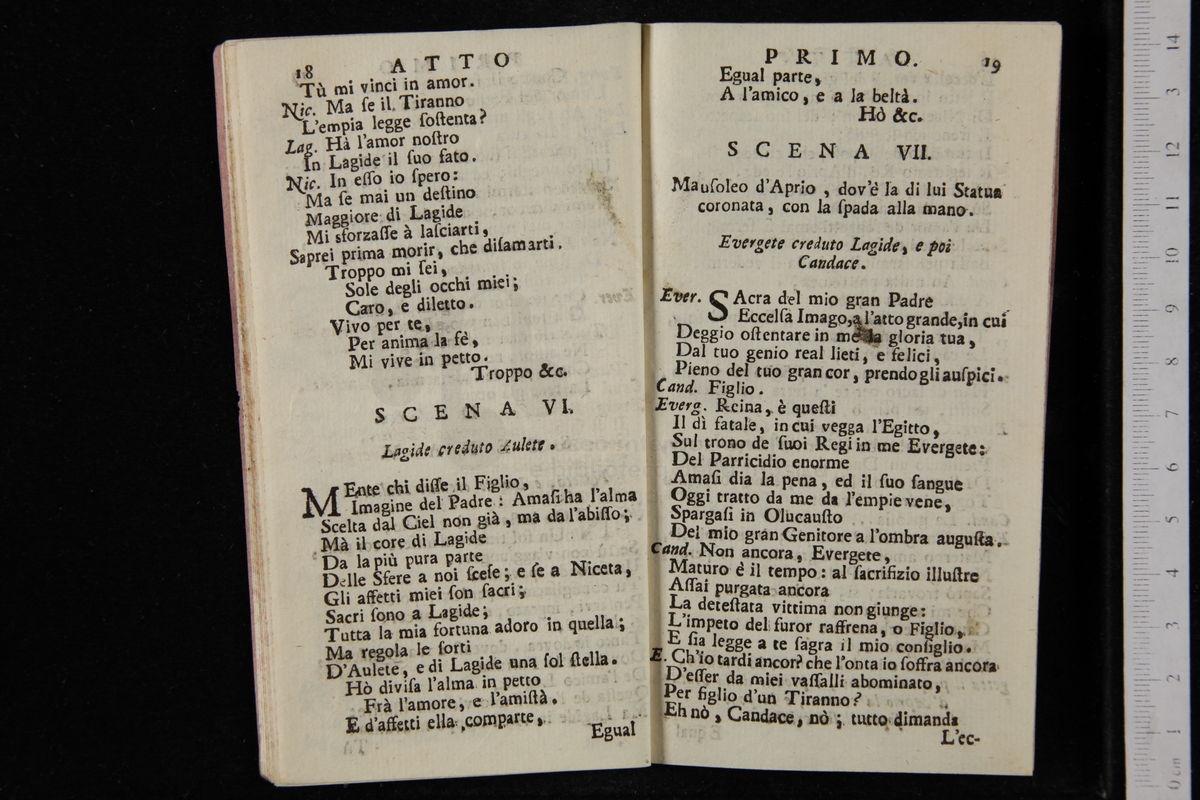 18 ATTO
Tù mi vinci in amor.
Nic. Ma ſe il Tiranno
L'empia legge ſoſtenta?
Lag. Hà l'amor noſtro
In Lagide il ſuo fato.
Nic. In eſſo io ſpero:
Ma ſe mai un deſtino
Maggiore di Lagide
Mi sforzaſſe à laſciarti,
Saprei prima morir, che diſamarti.
Troppo mi ſei,
Sole degli occhi miei;
Caro, e diletto.
Vivo per te,
Per anima la fè,
Mi vive in petto.
Troppo &c.
SCENA VI.
Lagide creduto Aulete.
MEnte chi diſſe il Figlio,
Imagine del Padre: Amaſi ha l'alma
Scelta dal Ciel non già, ma da l'abiſſo;
Mà il core di Lagide
Da la più pura parte
Delle Sfere a noi ſceſe; e ſe a Niceta,
Gli affetti miei ſon ſacri;
Sacri ſono a Lagide;
Tutta la mia fortuna adoro in quella;
Ma regola le ſorti
D'Aulete, e di Lagide una ſol ſtella.
Hò diviſa l'alma in petto
Frà l'amore, e l'amiſtà.
E d'affetti ella comparte,
Egual
PRIMO. 19
Egual parte,
A l'amico, e a la beltà.
Hò &c.
SCENA VII.
Mauſoleo d'Aprio, dov'è la di lui Statua
coronata, con la ſpada alla mano.
Evergete creduto Lagide, e poi
Candace.
Ever. SAcra del mio gran Padre
Eccelſa Imago, a l'atto grande, in cui
Deggio oſtentare in me la gloria tua,
Dal tuo genio real lieti, e felici,
Pieno del tuo gran cor, prendo gli auſpici.
Cand. Figlio.
Everg. Reina, è queſti
Il dì fatale, in cui vegga l'Egitto,
Sul trono de ſuoi Regi in me Evergete:
Del Parricidio enorme
Amaſi dia la pena, ed il ſuo ſangue
Oggi tratto da me da l'empie vene,
Spargaſi in Olucauſto
Del mio gran Genitore a l'ombra auguſta.
Cand. Non ancora, Evergete,
Maturo è il tempo: al ſacrifizio illuſtre
Aſſai purgata ancora
La deteſtata vittima non giunge:
L'impeto del furor raffrena, o Figlio,
E ſia legge a te ſagra il mio conſiglio.
E. Ch'io tardi ancor? che l'onta io ſoffra ancora
D'eſſer da miei vaſſalli abominato,
Per figlio d'un Tiranno?
Eh nò, Candace, nò; tutto dimanda
L'ec-
0 cm 1 2 3 4 5 6 7 8 9 10 11 12 3 14